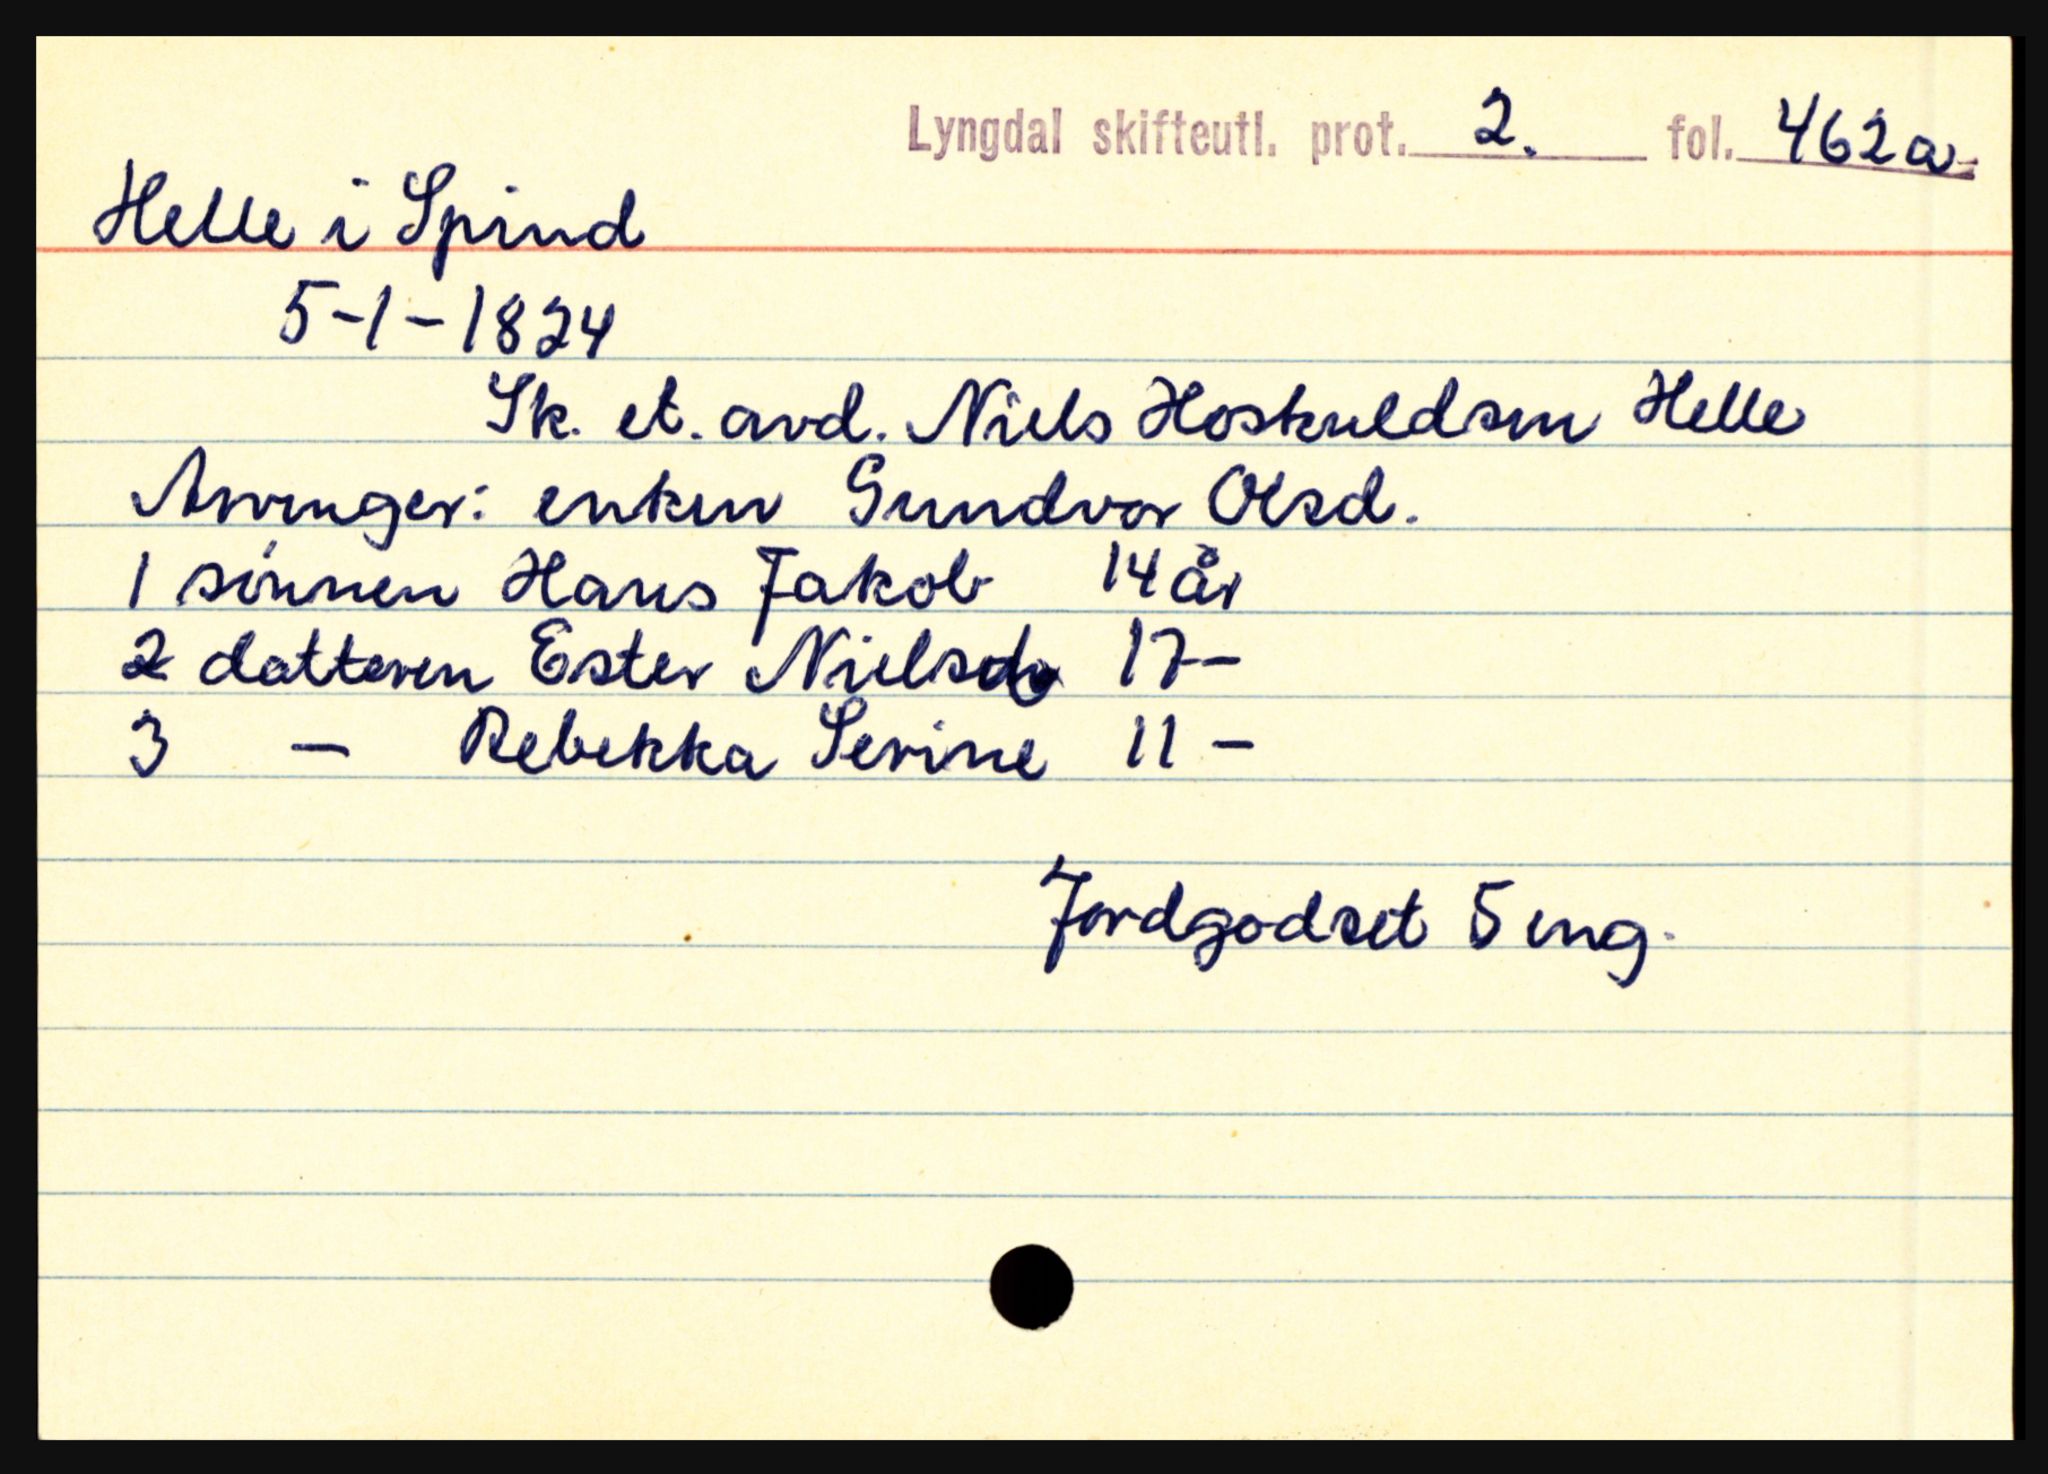 Lyngdal skifteutl. prot. 2. fol. 462a
Helle i Spind
5-1-1824
Sk. et. avd. Niels Hoskuldsen Helle
Arvinger: enken Gundvor Olsd.
1 sønnen Hans Jakob 14 år
2 datteren Ester Nielsd 17 –
3 – Rebekka Serine 11 –
Jordgodset 5 eng.